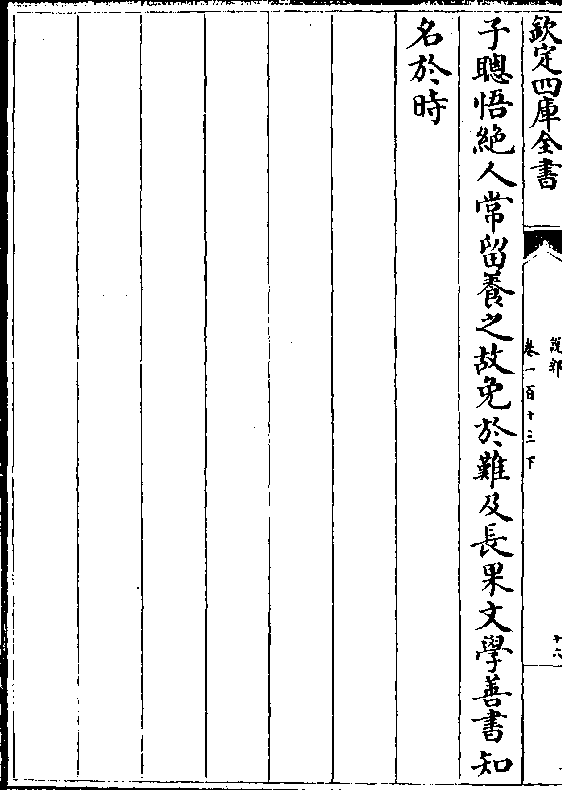 欽定四庫全書
說郛
卷一百十三下
十六
子聰悟絶人常留養之故免於難及長果文學善書知
名於時